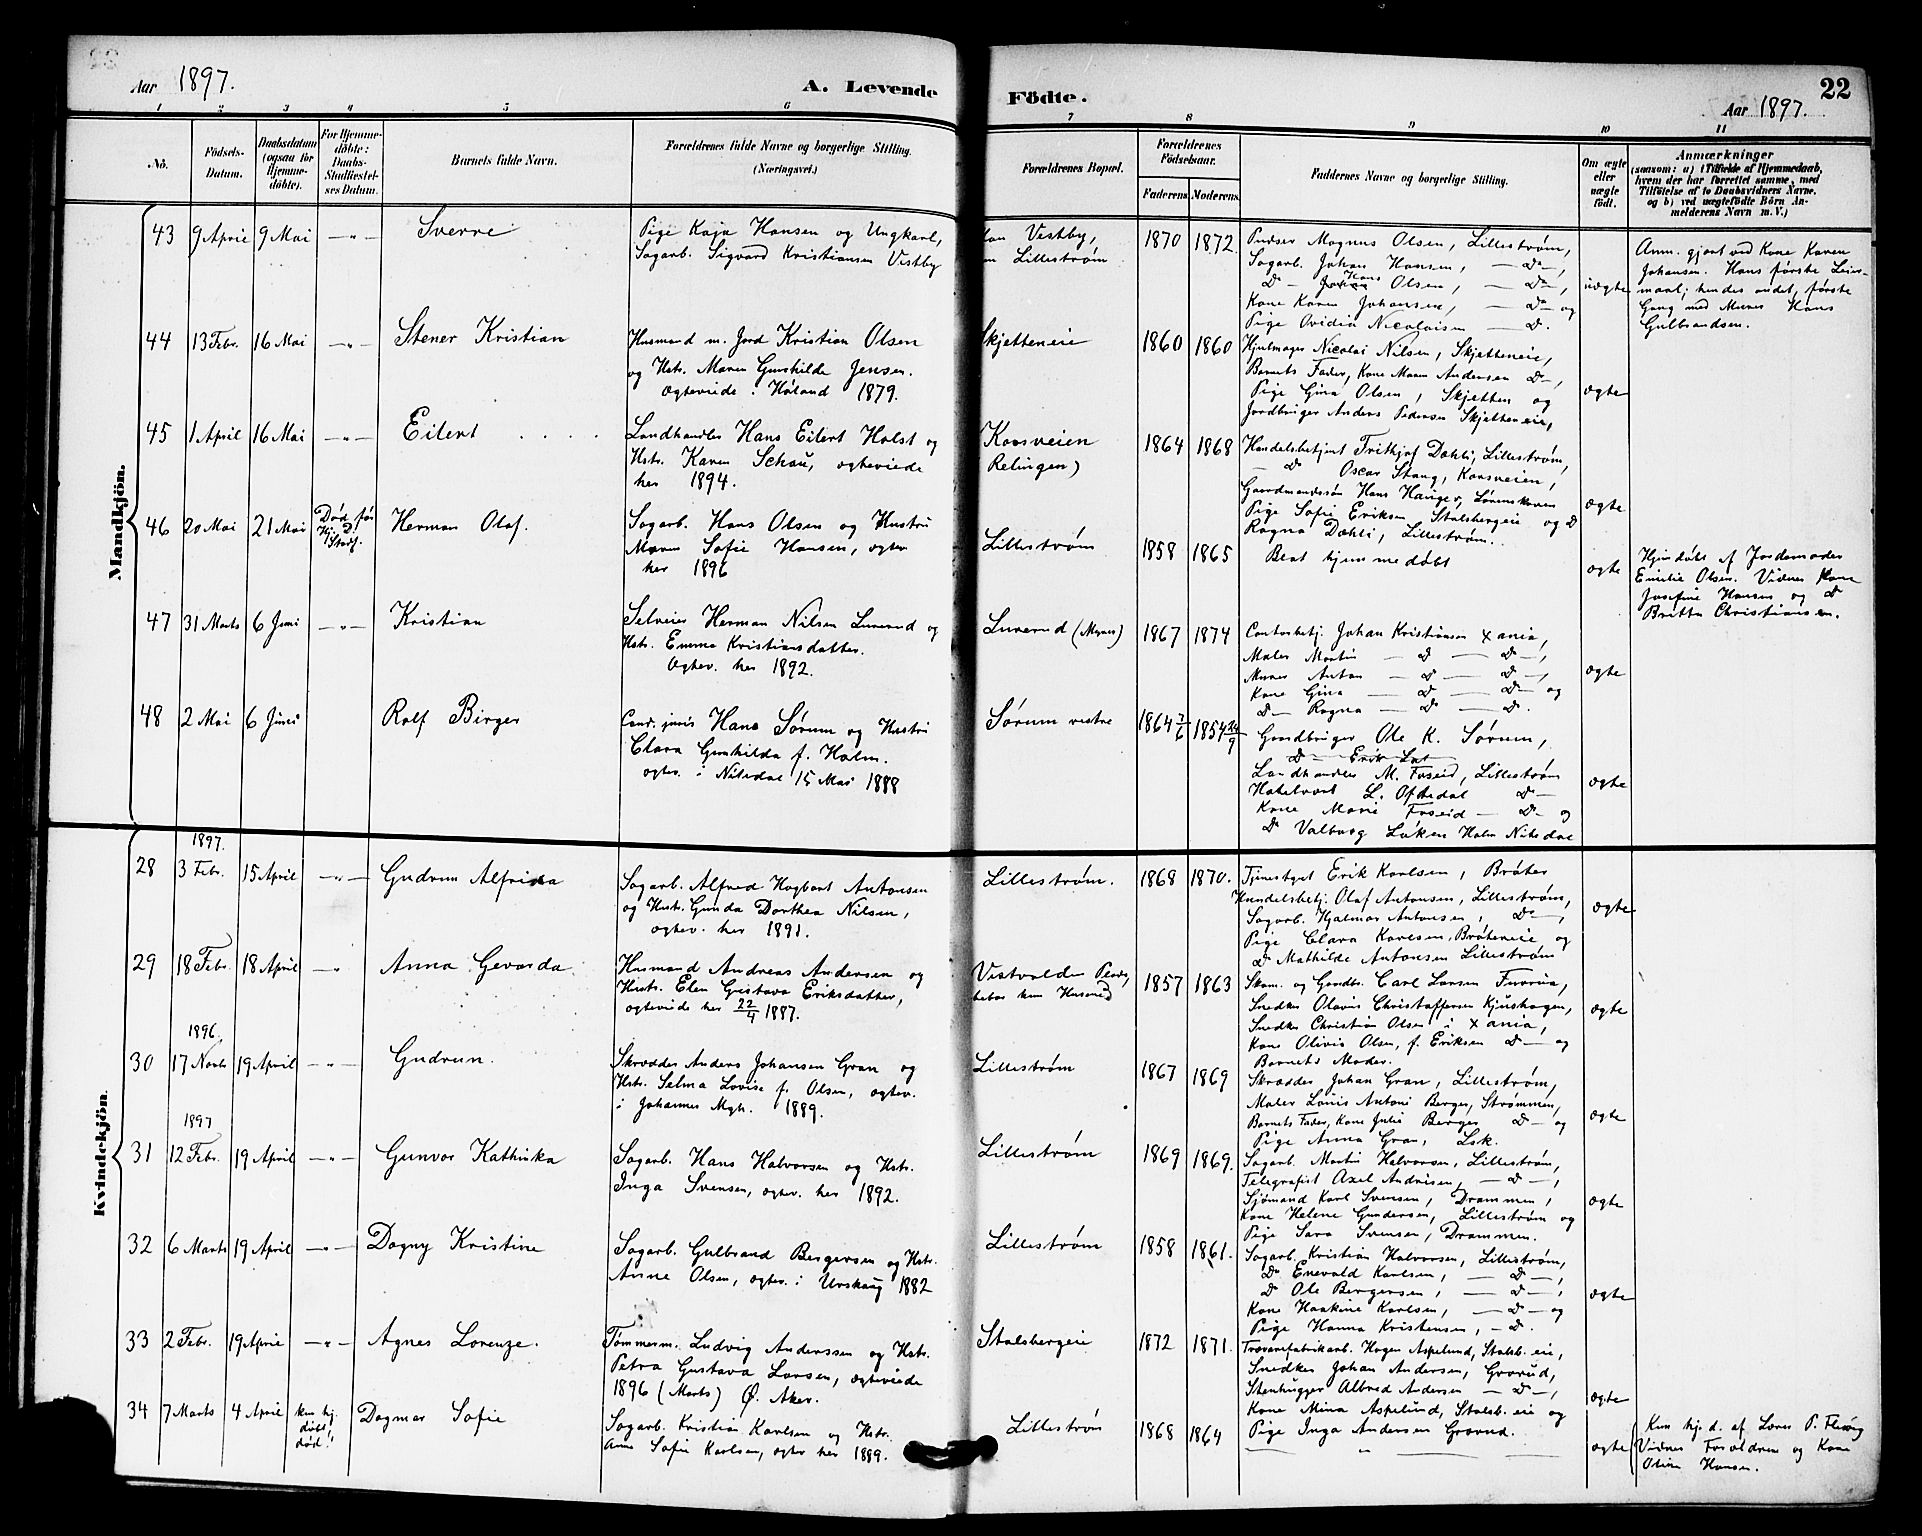 Aar 1897.
A. Levende
Födte.
22
Aar 1897.
1 2 3 4 5 6 7 8 9 10 11
No.
Födsels-Datum.
Daabsdatum (ogsaa for Hjemme-döbte).
For Hjemme-döbte: Daabs-Stadfæstel-ses Datum.
Barnets fulde Navn.
Forældrenes fulde Navne og borgerlige Stilling.
(Næringsvei.)
Forældrenes Bopæl.
Forældrenes Födselsaar.
Faderens Moderens.
Faddernes Navne og borgerlige Stilling.
Om ægte eller uægte födt.
Anmærkninger
(saasom: a) i Tilfælde af Hjemmedaab,
hvem der har forrettet samme, med
Tilföielse af to Daabsvidners Navne,
og b) ved uægtefödte Börn An-
melderens Navn m. V.)
Mandkjön.
43 9 April 9 Mai — " — Sverre
Pige Kaja Hansen og Ungkarl,
Sagarb. Sigvard Kristiansen Vestby
Vestby,
Lillestrøm
1870 1872.
Pudser Magnus Olsen, Lillestrøm,
Sagarb. Johan Hansen, — Do —,
Do — Hans Olsen, — Do —,
Kone Karen Johansen, — Do — og
Pige Ovidia Nicolaisen — Do.
uægte
Anm. gjort ved Kone Karen
Johansen. Hans første Leier-
maal; hendes andet, første
Gang med Murer Hans
Gulbrandsen.
44 13 Febr. 16 Mai — " — Stener Kristian
Husmand m. Jord Kristian Olsen
og Hstr. Maren Gunhilde Jensen.
Ægteviede i Høland 1879.
Skjetteneie
1860 1860
Hjulmager Nicolai Nilsen, Skjetteneie,
Barnets Fader, Kone Maren Andersen Do —,
Pige Gina Olsen, Skjetten og
Jordbruger Anders Pedersen Skjetteneie,
ægte
45 1 April 16 Mai — " — Eilert . . . .
Landhandler Hans Eilert Holst og
Hstr. Karen Schau, ægteviede
her 1894.
Korsveien
Relingen)
1864 1868
Handelsbetjent Frithjof Dæhli, Lillestrøm,
— Do Oscar Stang, Korsveien,
Gaardmandssøn Hans Hauger, Lørenskoven
Pige Sofie Eriksen Stalsbergeie og Do
Ragna Dæhli, Lillestrøm.
ægte
46 20 Mai 21 Mai Død før Hj. D. Stadf. Herman Olaf.
Sagarb. Hans Olsen og Hustru
Maren Sofie Hansen, ægtev
her 1896
Lillestrøm
1858 1865
Blot hjemmedøbt
ægte
Hjemdøbt af Jordemoder
Emilie Olsen. Vidner Kone
Josefine Hansen og Do
Britta Christiansen.
47 31 Marts 6 Juni — " — Kristian
Selveier Herman Nilsen Lurerud og
Hstr. Emma Kristiansdatter.
Ægtev. her 1892.
Lurerud
1867 1874
Contorbetj. Johan Kristiansen Xania,
Maler Martin — Do — Do —,
Murer Anton — Do — Do —,
Kone Gina — Do — Do — og
Do — Ragna — Do — Do.
ægte
48 2 Mai 6 Juni Rolf Birger
Cand. juris Hans Sørum og Hustru
Clara Gunhilda f. Holm.
ægtev. i Nitedal 15 Mai 1888
Sørum vestre
1864 7/6 1854 24/9
Gaardbruger Ole K. Sørum,
Landhandler M. Foseid, Lillestrøm
Hotelvært L. Oftedal Do —
Kone Marie Foseid — Do — og
Do Valborg Løken Holm Nitedal
ægte
Kvindekjön.
1897.
28 3 Febr. 15 April — " — Gudrun Alfrida
Sagarb. Alfred Hagbart Antonsen
og Hustr. Gunda Dorthea Nilsen,
ægtev. her 1891.
Lillestrøm.
1868 1870.
Tjenestgut Erik Karlsen, Bråter
Handelsbetj. Olaf Antonsen, Lillestrøm,
Sagarb. Hjalmar Antonsen, Do —,
Pige Clara Karlsen, Bråteneie og
Do Mathilde Antonsen Lillestrøm
ægte
29 18 Febr. 18 April — " Anna Gevarda
Husmand Andreas Andersen og
Hustr. Elen Gustava Eriksdatter,
ægteviede her 22/4 1887.
1857 1863
Skom. og Gaardbr. Carl Larsen Furua,
Snedker Olavis Christoffersen Kjushagen,
Snedker Christian Olsen i Xania,
Kone Olivia Olsen, f. Eriksen Do — og
Barnets Moder.
ægte
1896,
30 17 Novb 19 April — " — Gudrun.
Skrædder Anders Johansen Gran og
Hstr. Selma Lovise f. Olsen, ægtev.
i Johannes Mgh. 1889.
Lillestrøm
1867 1869
Skrædder Johan Gran, Lillestrøm,
Maler Louis Antoni Berger, Strømmen,
Barnets Fader, Kone Julie Berger Do — og
Pige Anna Gran, Lsk.
ægte
1897
31 12 Febr. 19 April — " — Gunvor Kathinka
Sagarb. Hans Halvorsen og Hstr.
Inga Svensen, ægtev. her 1892.
Lillestrøm
1869 1869.
Sagarb. Martin Halvorsen, Lillestrøm,
Telegrafist Axel Andrisen, — Do —,
Sjømand Karl Svensen, Drammen,
Kone Helene Gundersen, Lillestrøm og
Pige Sara Svensen, Drammen.
ægte
32 6 Marts 19 April — " — Dagny Kristine
Sagarb. Gulbrand Bergersen og Hstr.
Anne Olsen, ægtev. i Urskaug 1882
Lillestrøm
1858 1861.
Sagarb. Kristian Halvorsen, Lillestrøm,
Do Enevald Karlsen, — Do —,
Do Ole Bergersen, — Do —,
Kone Haakine Karlsen, — Do — og
Pige Hanna Kristensen, — Do.
ægte
33 2 Febr. 19 April — " — Agnes Lorenze.
Tømmerm. Ludvig Anderssen og Hstr.
Petra Gustava Larsen, ægteviede
1896 (Marts) Ø. Aker.
Stalsbergeie
1872 1871.
Trævarefabrikarb. Hagen Aspelund, Stalsb. eie,
Snedker Johan Andersen, Grorud,
Stenhugger Albred Andersen — Do —,
Kone Mina Aspelund, Stalsb. eie og
Pige Inga Andersen Grorud.
ægte
34 7 Marts 4 April kun hj. døbt, død! Dagmar Sofie
Sagarb. Kristian Karlsen og Hstr.
Anne Sofie Karlsen, ægtev her 1889.
Lillestrøm
1868 1864
— " —
ægte
Kun hj. d. af Lars P.
Vidner Forældrene og Kone
Oline Hansen.